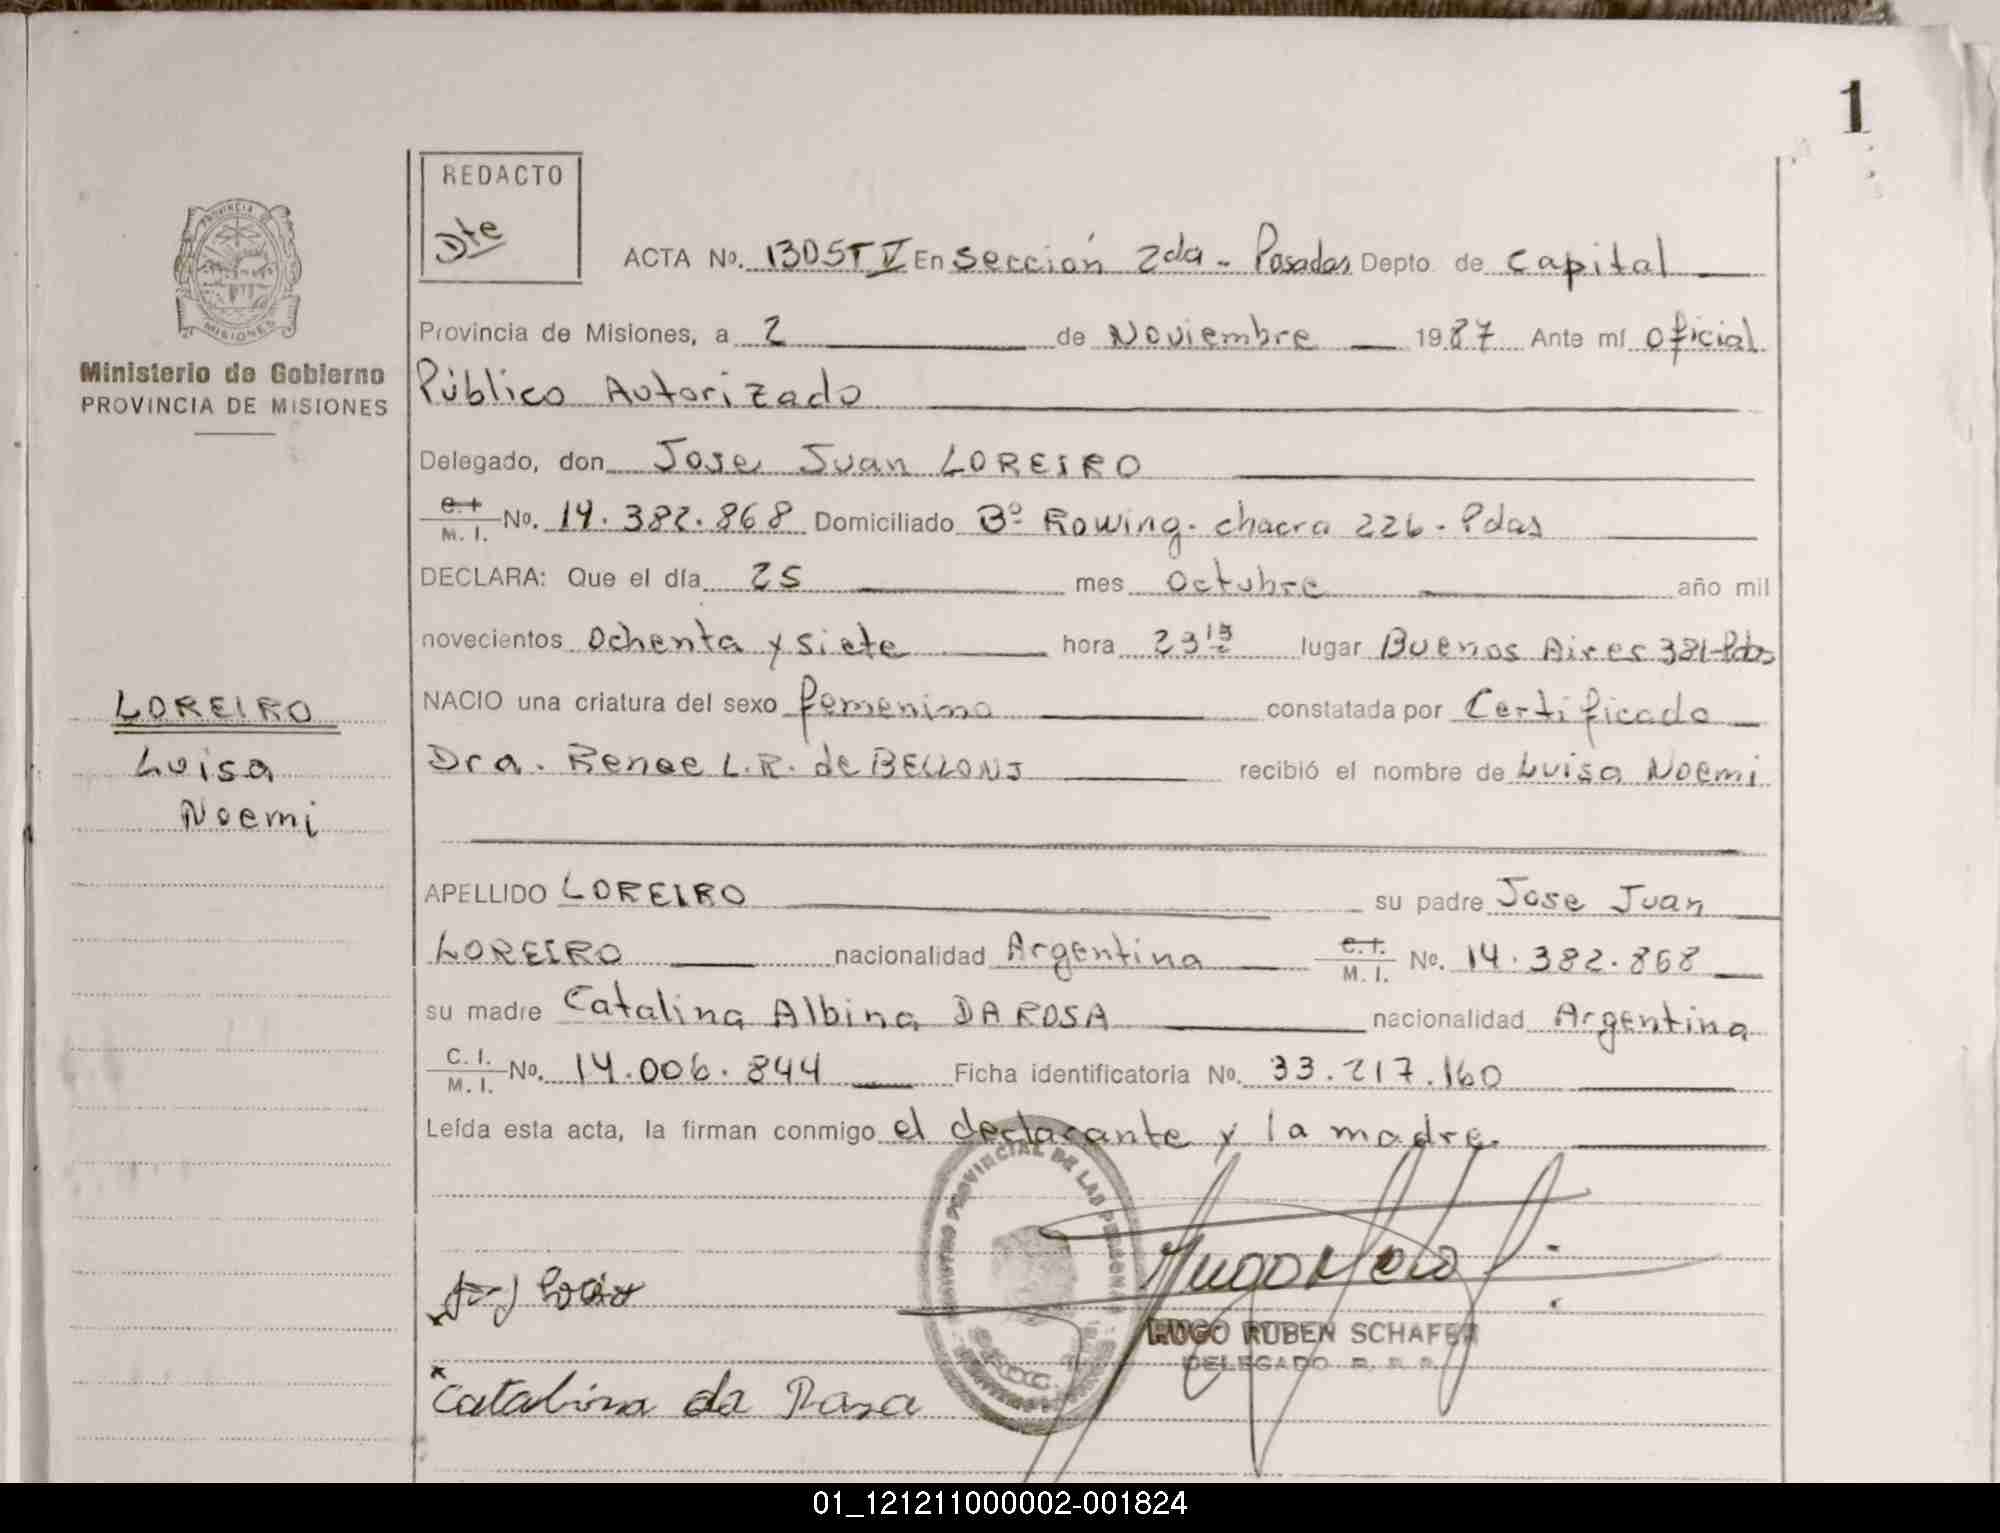 1
REDACTO
Dte
PROVINCIA DE
MISIONES
Ministerio de Gobierno
PROVINCIA DE MISIONES
ACTA No. 1305 T V En Sección 2da - Posadas Depto. de Capital
Provincia de Misiones, a 2 de Noviembre 1987 Ante mí Oficial
Público Autorizado
Delegado, don Jose Juan LOREIRO
C.I. M. I. No. 14.382.868 Domiciliado Bº Rowing - chacra 226 - Pdas
DECLARA: Que el día 25 mes Octubre año mil
novecientos Ochenta y siete hora 23 15 lugar Buenos Aires 381-Pdas
NACIO una criatura del sexo femenino constatada por Certificado
Dra. Renee L.R. de BELLONI recibió el nombre de Luisa Noemi
LOREIRO
Luisa
Noemi
APELLIDO LOREIRO su padre Jose Juan
LOREIRO nacionalidad Argentina C.I. M. I. No. 14.382.868
su madre Catalina Albina DA ROSA nacionalidad Argentina
C. I. M. I. No. 14.006.844 Ficha identificatoria No. 33.217.160
Leída esta acta, la firman conmigo el declarante y la madre.
REGISTRO PROVINCIAL DE LAS PERSONAS
HUGO RUBEN SCHAFER
DELEGADO R. P. P.
Catalina da Rosa
01_121211000002-001824